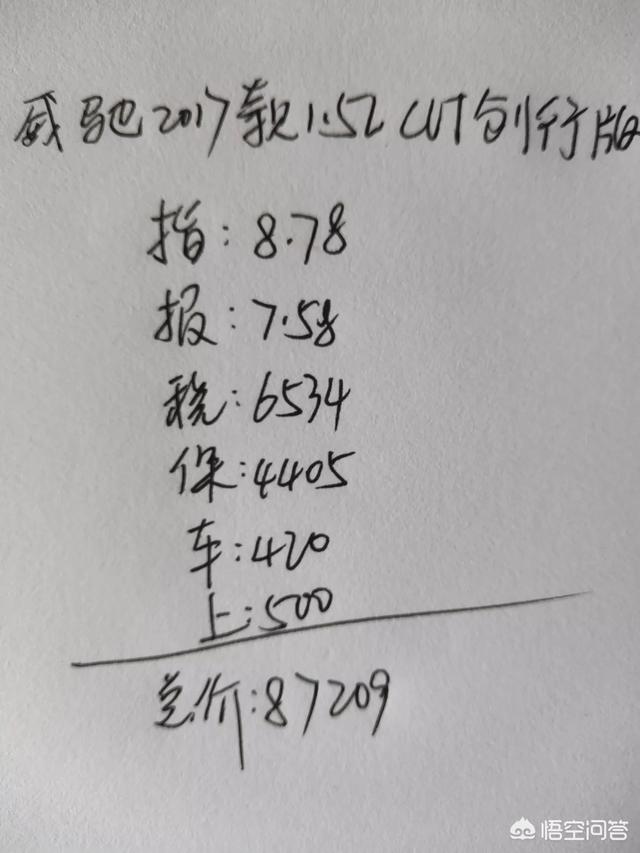 威驰2017款1.5L CVT创行版
指:8.78
报:7.58
税:6534
保:4405
车:420
上:500
总价:87209
悟空问答